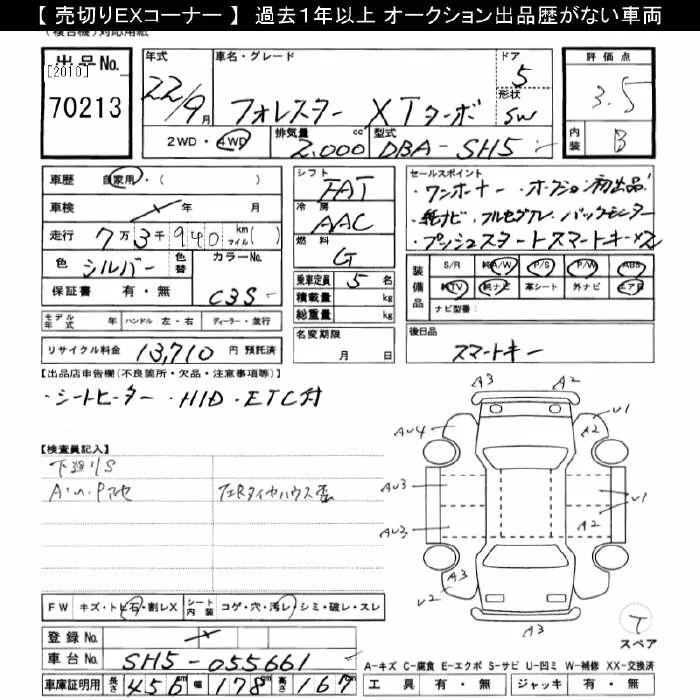 【 売切りEXコーナー 】 過去1年以上 オークション出品歴がない車両
(複合機)対応用紙
出品No.
[2010]
70213
年式 22/9月
車名・グレード フォレスター XTターボ
ドア 5
形状 SW
評価点 3.5
内装 B
2WD・4WD 排気量 2.000 cc 型式 DBA-SH5
車歴 自家用・( )
車検 年 月
走行 7万3千940 km マイル( )
色 シルバー 色替 カラーNo. C3S
保証書 有・無
シフト FAT
冷房 AAC
燃料 G
乗車定員 5 名
積載量 kg
総重量 kg
名変期限 月 日
セールスポイント
・ワンオーナー・オークション初出品!
・純ナビ・フルセグTV・バックモニター
・プッシュスタートスマートキー×2
装備品 S/R 純A/W P/S P/W ABS
純TV 純ナビ 革シート 外ナビ エアB
ナビ型番:
モデル年式 年 ハンドル 左・右 ディーラー・並行
リサイクル料金 13,710 円 預託済
後日品 スマートキー
【出品店申告欄(不良箇所・欠品・注意事項等)】
・シートヒーター・HID・ETC付
【検査員記入】
下廻りS
A・U・P他 左Rタイヤハウス歪
A3 A2
U1
AU4 A2
AU3 U1
AU3 A2
U2 A2
A3
FW キズ・トビ石・割レX シート内装 コゲ・穴・汚レ・シミ・破レ・スレ
T
スペア
登録No.
車台No. SH5-055661
A-キズ C-腐食 E-エクボ S-サビ U-凹ミ W-補修 XX-交換済
車庫証明用 長さ 456 cm 幅 178 cm 高さ 167 cm
工具 有・無 ジャッキ 有・無